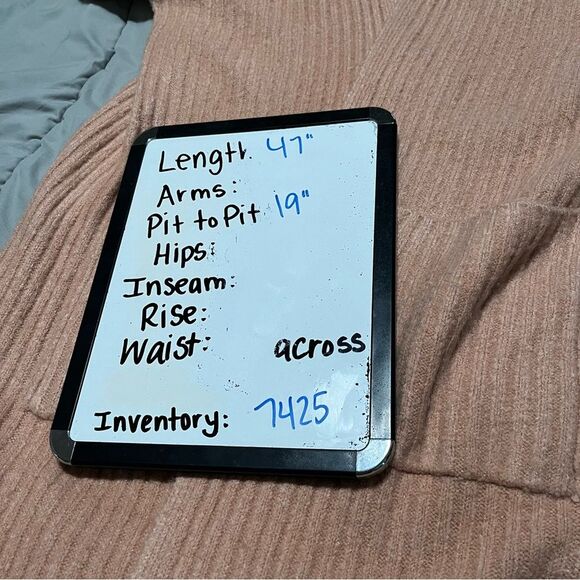 Length 47"
Arms:
Pit to Pit 19"
Hips:
Inseam:
Rise:
Waist: across
Inventory: 7425